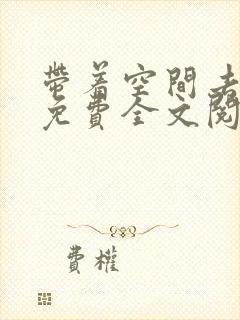 帶着空間
免費全文閱
費權